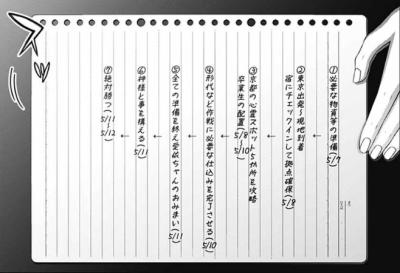 ①必要な物資等の準備(5/7)
↓
②東京出発〜現地到着
宿にチェックインして拠点確保(5/8)
↓
③京都の心霊スポット5か所を攻略
卒業生の配置(5/8〜5/10)
↓
④形代など作戦に必要な仕込みを完了させる(5/10)
↓
⑤全ての準備を終え愛依ちゃんのおみまい(5/11)
↓
⑥神様と事を構える(5/11)
↓
⑦絶対勝つ(5/11〜5/12)